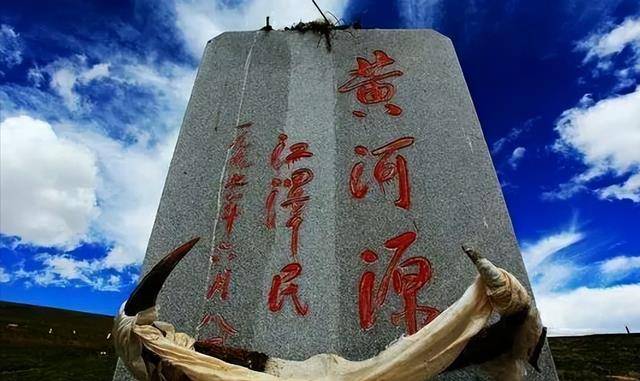 黄河源
江澤民
一九九九年六月八